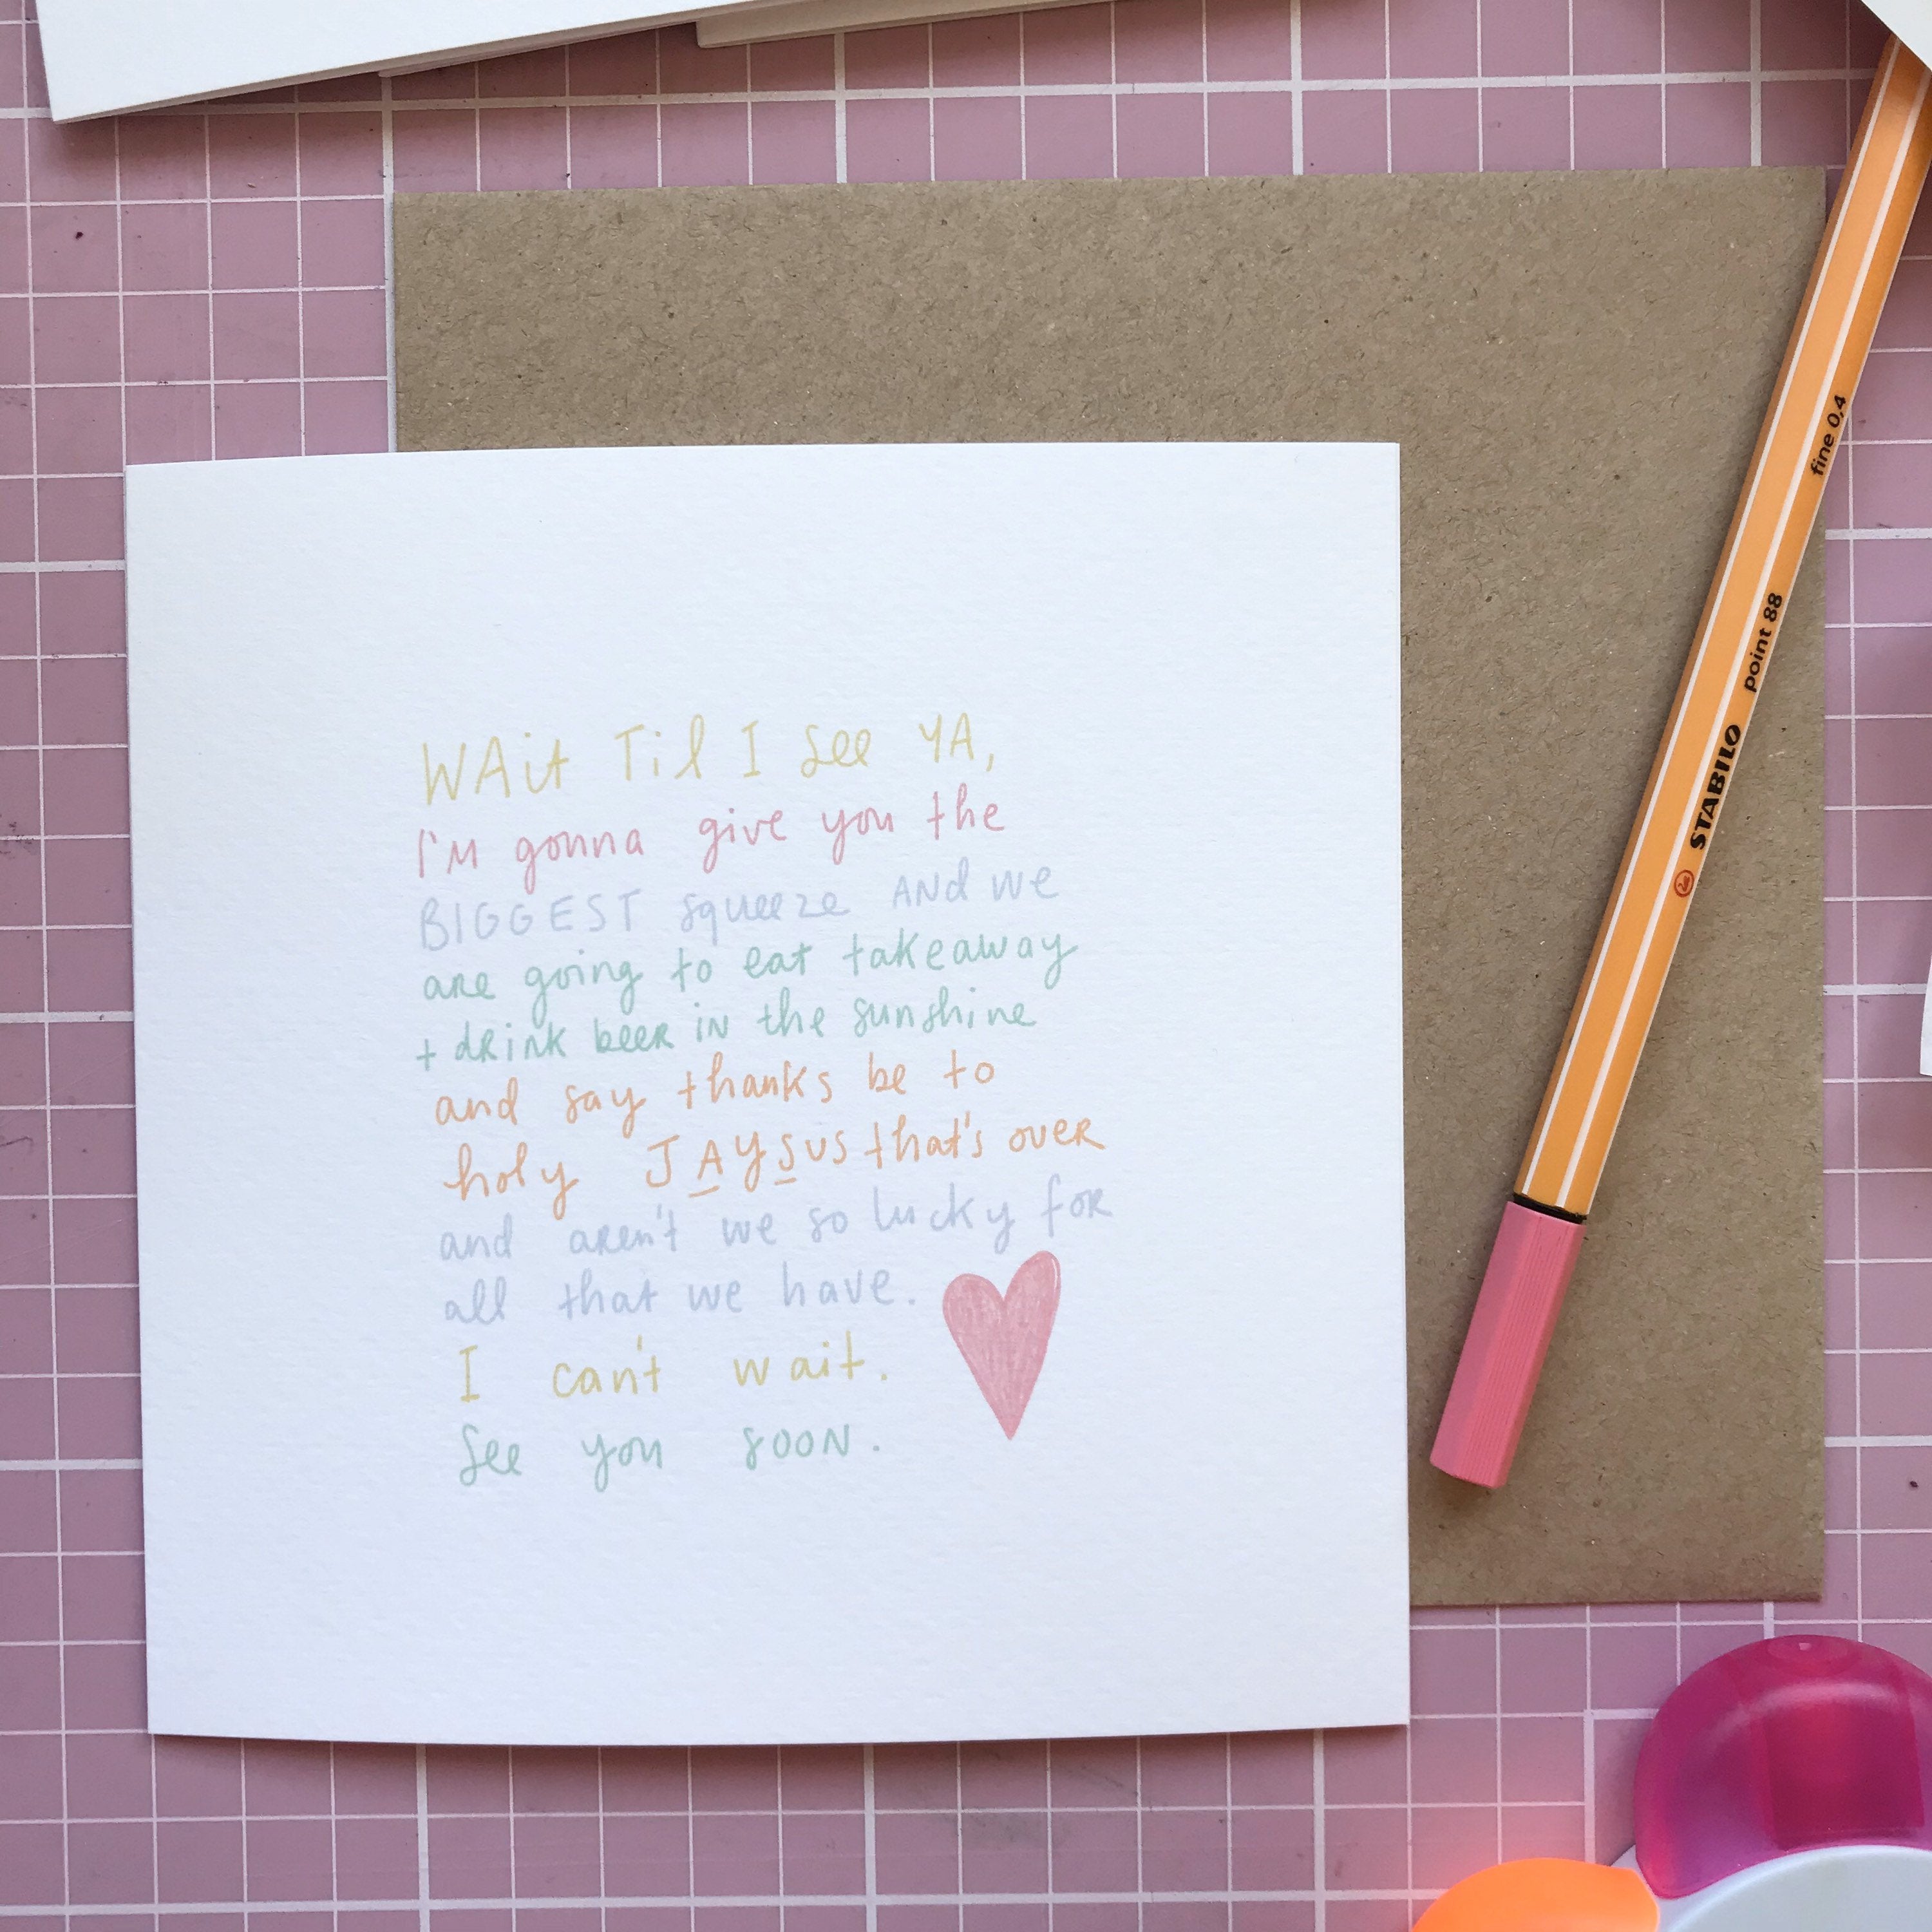 WAit Til I see YA,
I'm gonna give you the
BIGGEST squeeze ANd we
are going to eat takeaway
+ drink beer in the sunshine
and say thanks be to
holy JAYSUS that's over
and aren't we so lucky for
all that we have.
I can't wait.
See you soon.
STABILO point 88 fine 0,4